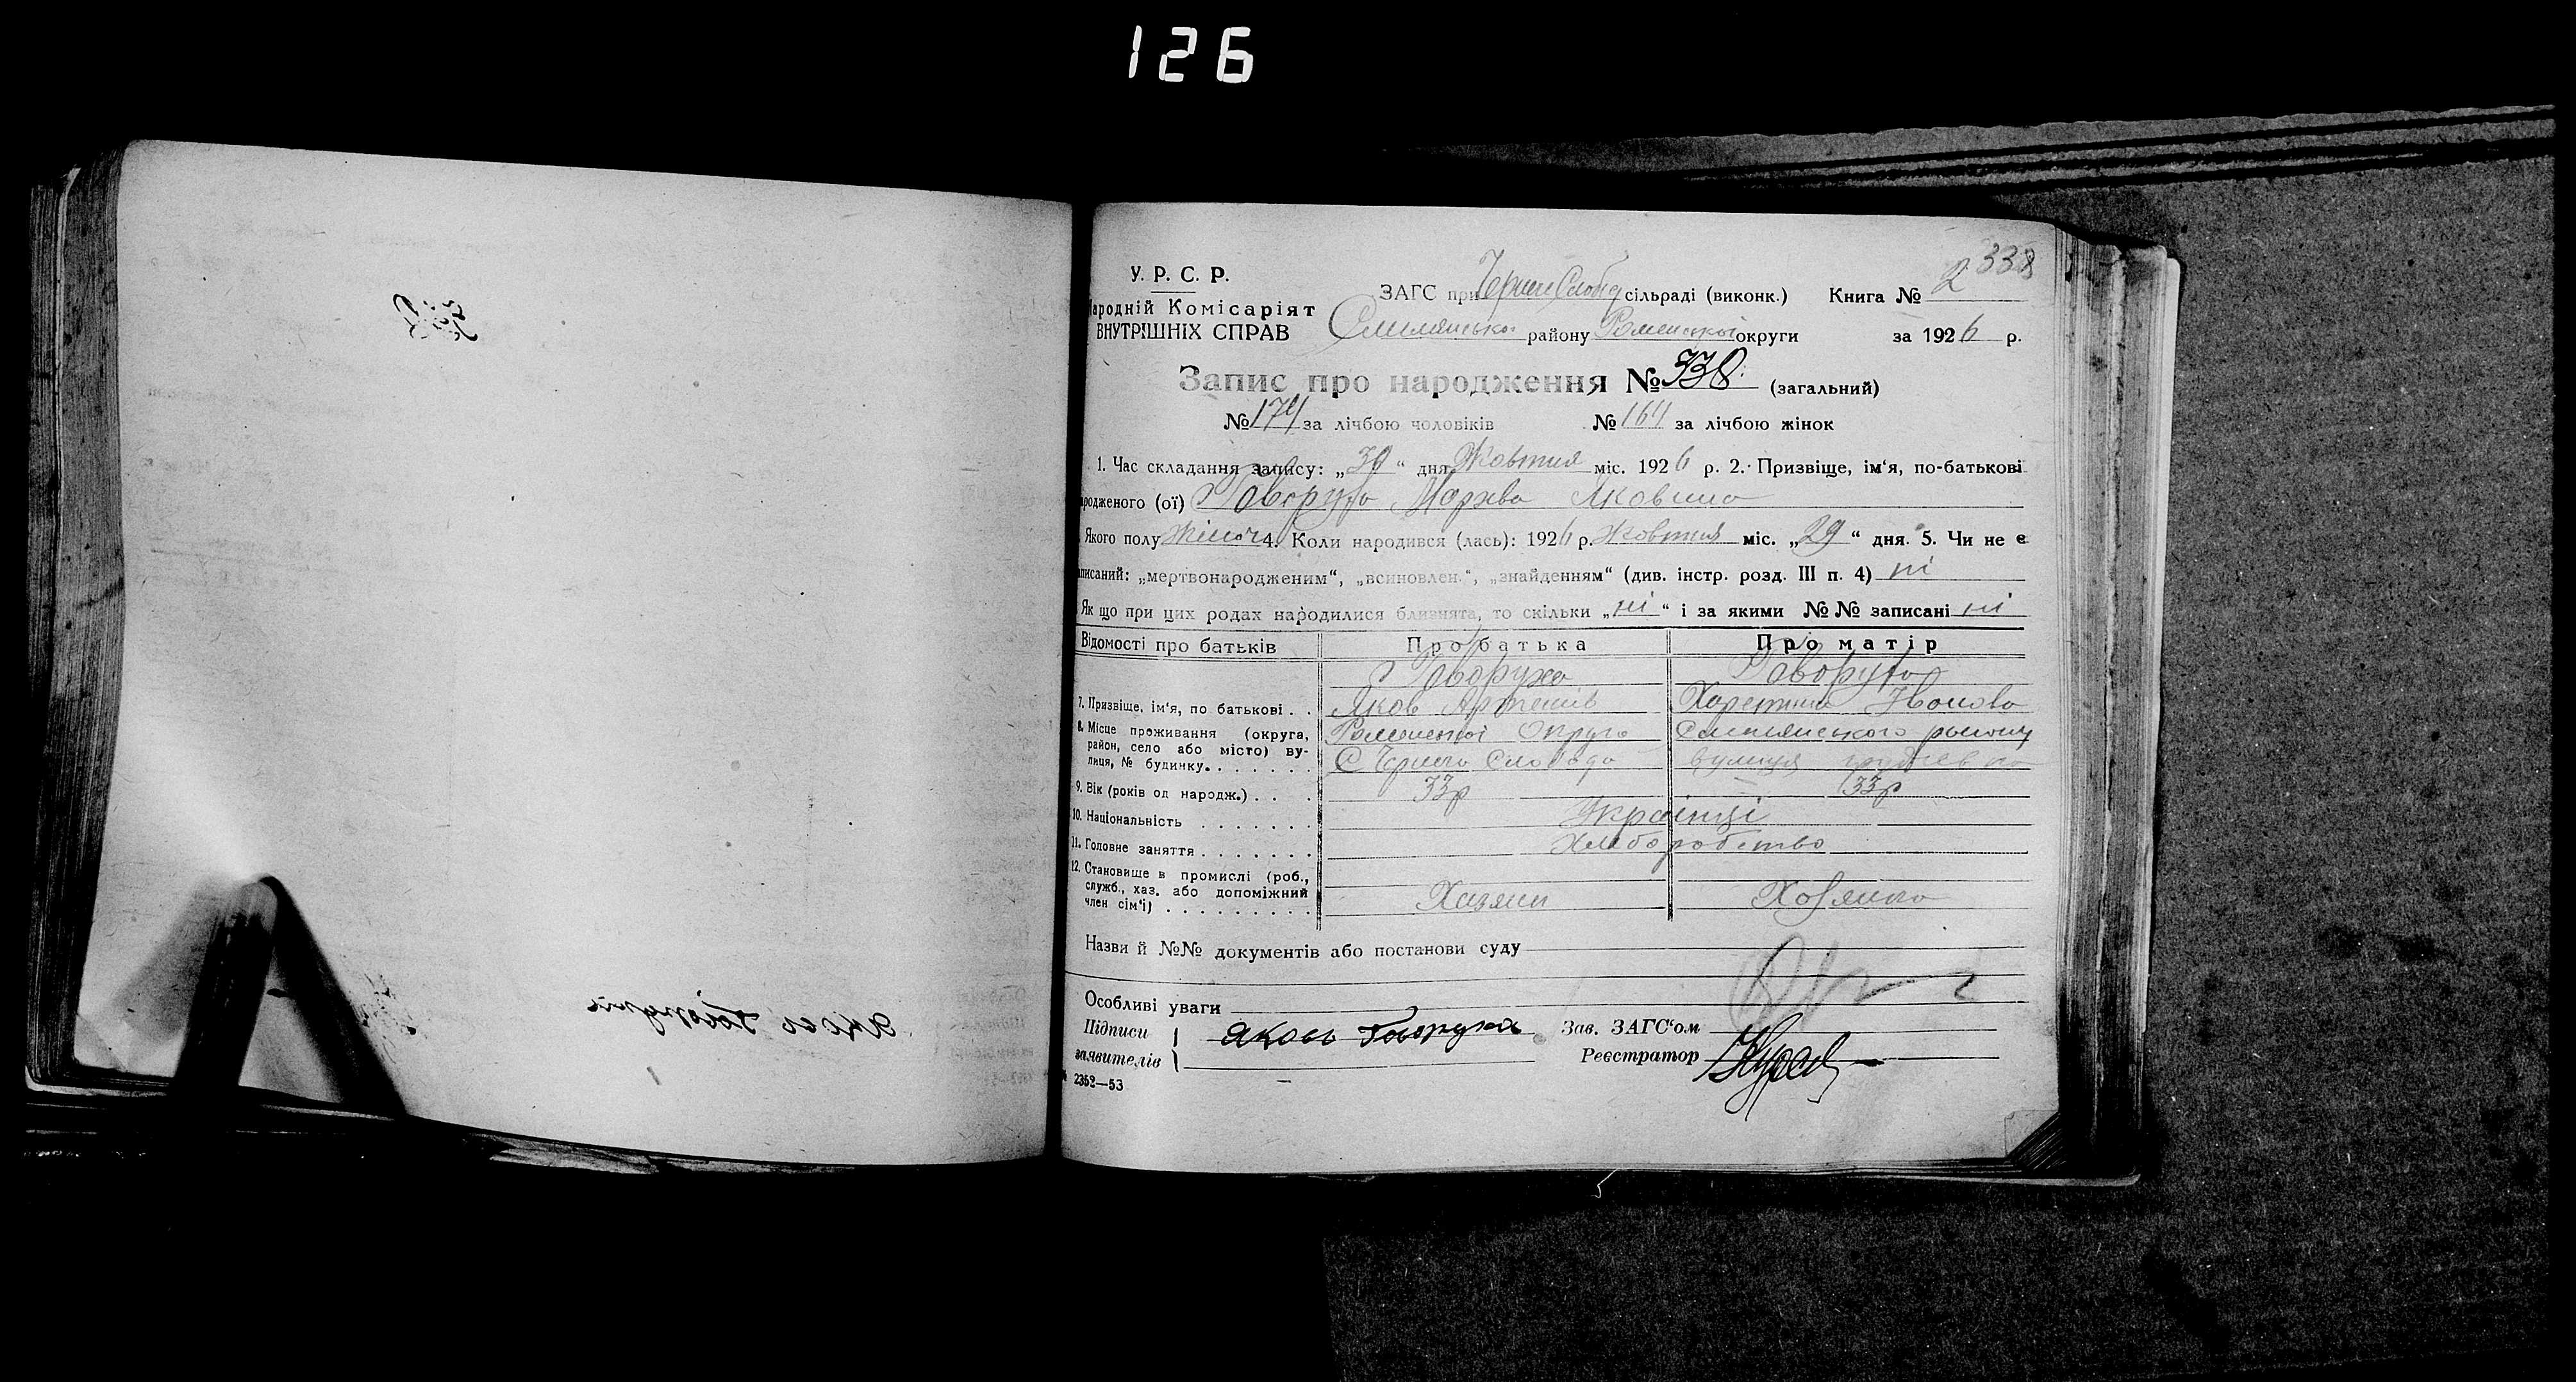 126
338
У. Р. С. Р.
Народній Комісаріят
ВНУТРІШНІХ СПРАВ
ЗАГС при сільраді (виконк.) Книга № 2
району Роменської округи за 1926 р.
Запис про народження № 338 (загальний)
№ 174 за лічбою чоловіків № 164 за лічбою жінок
1. Час складання запису: „30“ дня Жовтня міс. 1926 р. 2. Призвіще, ім‘я, по-батькові
народженого (ої) Говоруха Мархва Яковина
Якого полу жіноч 4. Коли народився (лась): 1926 р. Жовтня міс. „29“ дня. 5. Чи не є
записаний: „мертвонародженим“, „всиновлен.“, „знайденням“ (див. інстр. розд. III п. 4) ні
Як що при цих родах народилися близнята, то скільки „ні“ і за якими №№ записані ні
Відомості про батьків Про батька Про матір
Говоруха Говоруха
7. Призвіще, ім‘я, по батькові . . Яков Артемів Харетина
8. Місце проживання (округа, Роменської Округи району
район, село або місто) ву-
лиця, № будинку. . . . . . . С Черна Слобода вулиця
9. Вік (років од народж.) . . . 33р 33р
10. Національність . . . . . . . Українці
11. Головне заняття . . . . . . . Хліборобство
12. Становище в промислі (роб.,
служб., хаз. або допоміжний
член сім‘ї) . . . . . . . . . Хазяин Хозяика
Назви й №№ документів або постанови суду
Особливі уваги
Підписи Яковь Говоруха Зав. ЗАГС‘ом
заявителів Реєстратор
2352—53